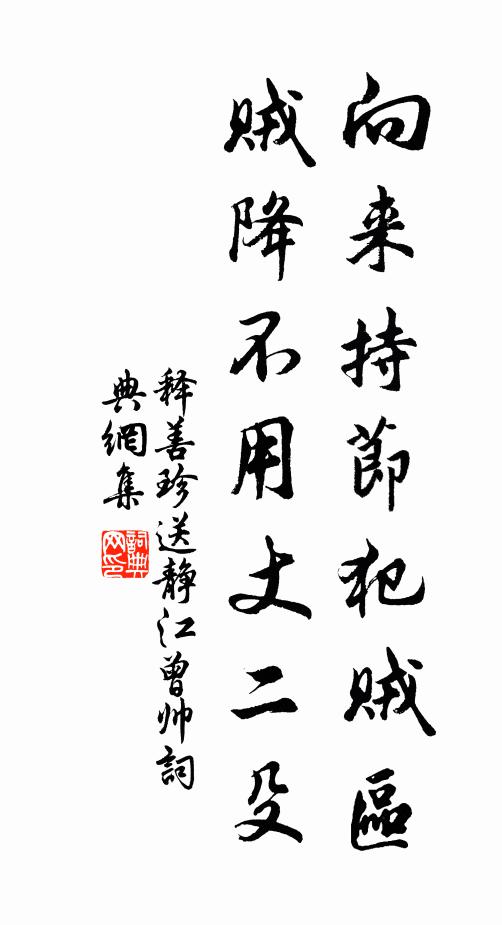 向来持節犯賊區
賊降不用丈二殳
释善珍送静江曾帅詞
典網集
詞典网印